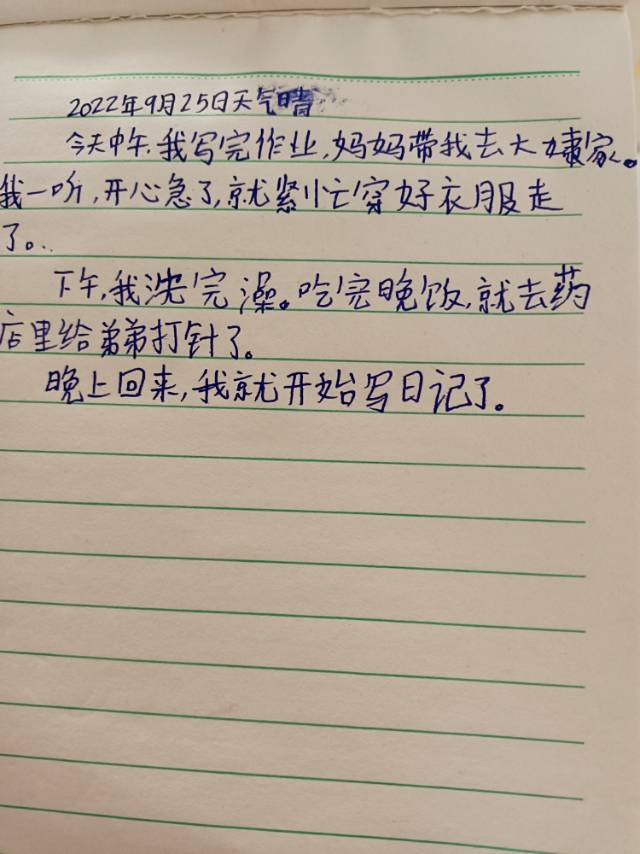 2022年9月25日天气晴
今天中午,我写完作业,妈妈带我去大家。
我一听,开心急了,就紧忙穿好衣服走
了。..
下午,我洗完澡。吃完晚饭,就去药
店里给弟弟打针了。
晚上回来,我就开始写日记了。